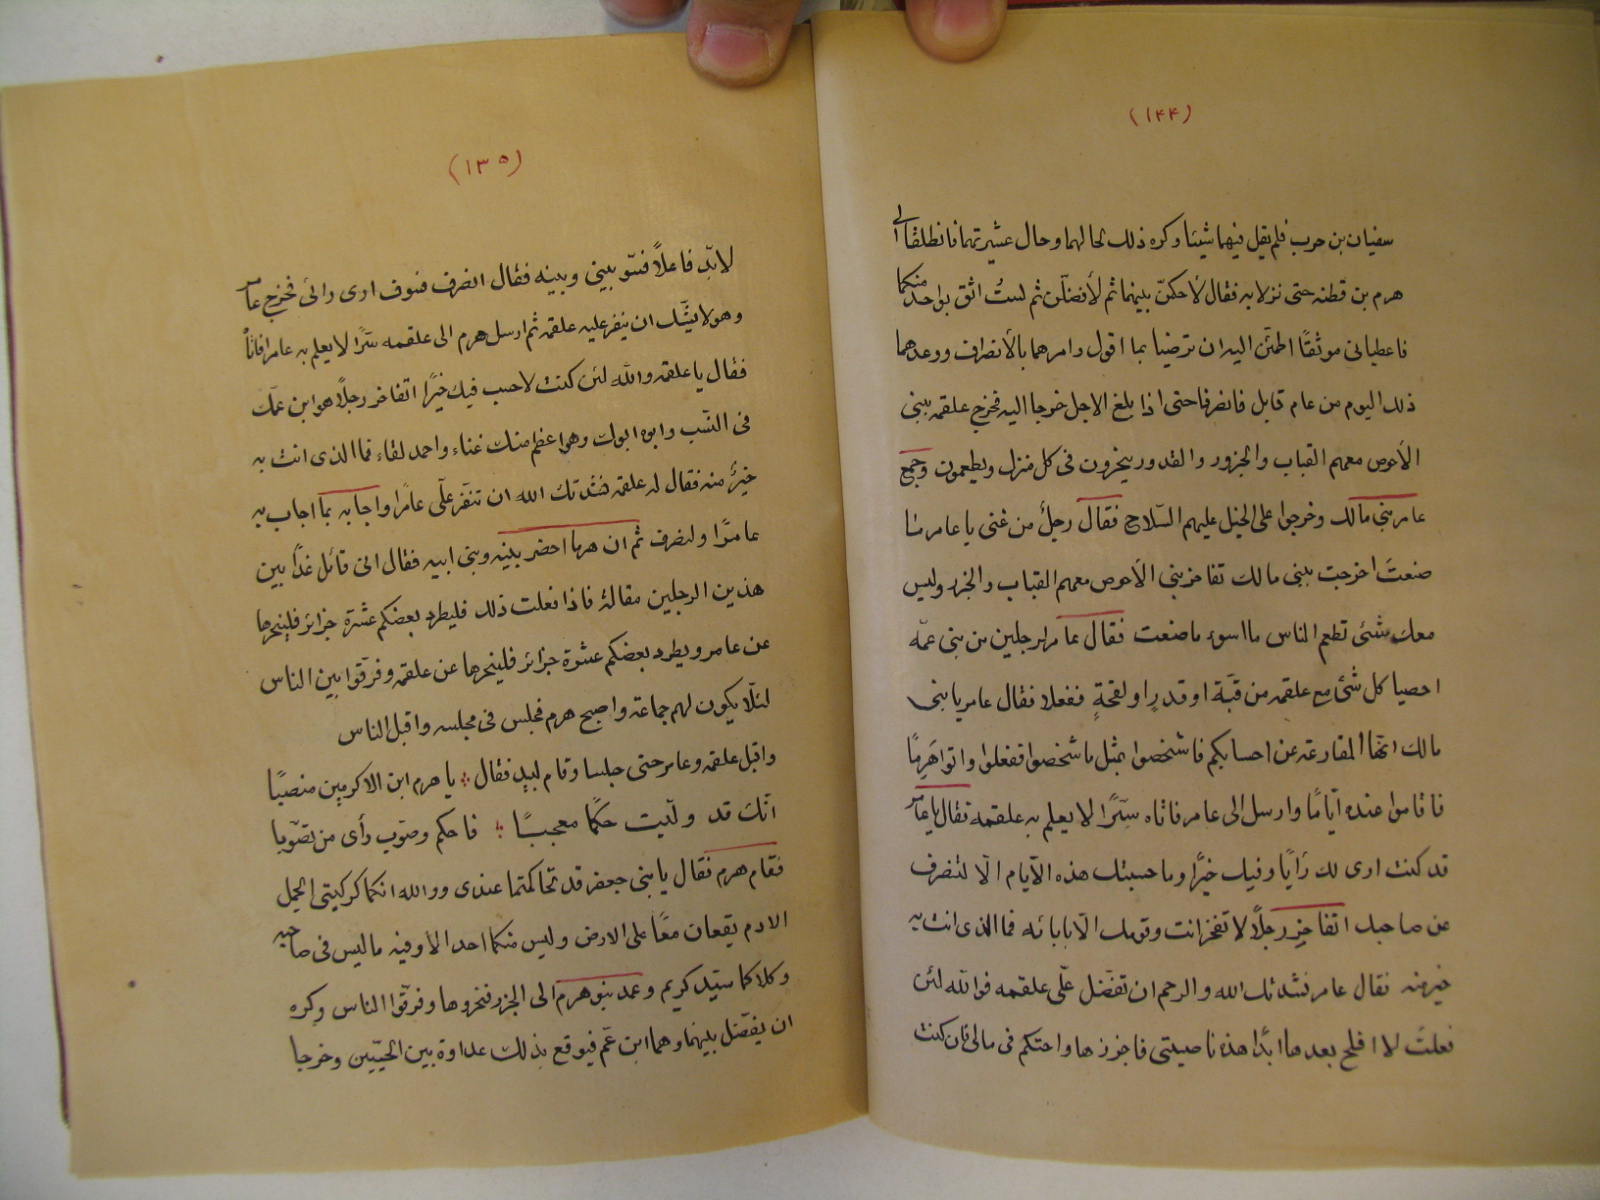 (۱۴۴)
سفيان بن حرب فلم يقل فيهما شيئا وكره ذلك لحالهما وحال عشيرتهما فانطلقا الى
هرم بن قطنه حتى نزلا به فقال لأحكمنّ بينهما ثم لأفضلنّ ثم لستُ اثق بواحد منكما
فاعطيانى موثقًا اطمئن اليه ان ترضيا بما اقول وامرهما بالأنصراف ووعدهما
ذلك اليوم من عام قابل فانصرفا حتى اذا بلغ الاجل خرجا اليه فخرج علقمه ببنى
الأحوص معهم القباب والجزور والقدور ينحرون فى كل منزل ويطعمون وجمع
عامر بنى مالك وخرجوا على الخيل عليهم السّلاح فقال رجلٌ من غنى يا عامر ما
صنعت اخرجت ببنى مالك تفاخر بنى الأحوص معهم القباب والجزر وليس
معك شئ تطعم الناس ما اسوء ما صنعت فقال عامر لرجلين من بنى عمّه
احصيا كل شئ مع علقمه من قبّة او قدرٍ او لقحةٍ ففعلا فقال عامر يا بنى
مالك انّها المقارعه عن احسابكم فاشخصوا بمثل ما شخصوا ففعلوا واتوا هَرِمًا
فاقاموا عنده ايّامًا وارسل الى عامر فاتاه سِرًّا لا يعلم به علقمه فقال يا عامر
قد كنت ارى لك رَأيًا وفيك خيرًا وما حسبتك هذه الأيام الّا لتنصرف
عن صاحبك اتفاخر رجلاً لا تفخر انت وقومك الّا بابائه فما الذى انت به
خير منه فقال عامر نشدتك الله والرحم ان تفضّل علّى علقمه فوالله لئن
فعلتَ لا افلح بعدها ابدًا هذه ناصيتى فاجززها واحتكم فى مالى فان كنت
(۱۳۵)
لابدّ فاعلاً فسّو بينى وبينه فقال انصرف فسوف ارى رائى فخرج عامر
وهو لا يشّك ان ينفر عليه علقمه ثم ارسل هرم الى علقمه سّرًا لا يعلم به عامر فاتاهُ
فقال يا علقمه والله لئن كنت لاحسب فيك خيرًا اتفاخر رجلاً هو ابن عمّك
فى النسّب وابوه ابوك وهو اعظم منك غناء واحمد لقاء فما الذى انت به
خيرٌ منه فقال له علقمه نشدتك الله ان تنفّر علّى عامرًا واجابه بما اجاب به
عامرًا وانصرف ثم ان هرما احضر بنيه وبنى ابيه فقال انى قائل غدًا بين
هذين الرجلين مقالةً فاذا فعلت ذلك فليطرد بعضكم عشرة جزائر فلينحرها
عن عامر ويطرد بعضكم عشرة جزائر فلينحرها عن علقمه وفرّقوا بين الناس
لئلّا يكون لهم جماعة واصبح هرم فجلس فى مجلسه واقبل الناس
واقبل علقمه وعامر حتى جلسا وقام لبيد فقال يا هرم ابن الاكرمين منصبًا
انّك قد ولّيت حكمًا معجبًا فاحكم وصوّب رأى من تصوّبا
فقام هرم فقال يا بنى جعفر قد تحاكمتما عندى ووالله انكما كركبتى الجمل
الادم يقعان معًا على الارض وليس منكما احد الّا وفيه ما ليس فى صاحبه
وكلاكما سيّد كريم وعمد بنو هرم الى الجزر فنحروها وفرّقوا الناس وكره
ان يفضّل بينهما وهما ابن عّم فيوقع بذلك عداوة بين الحيّين وخرجا